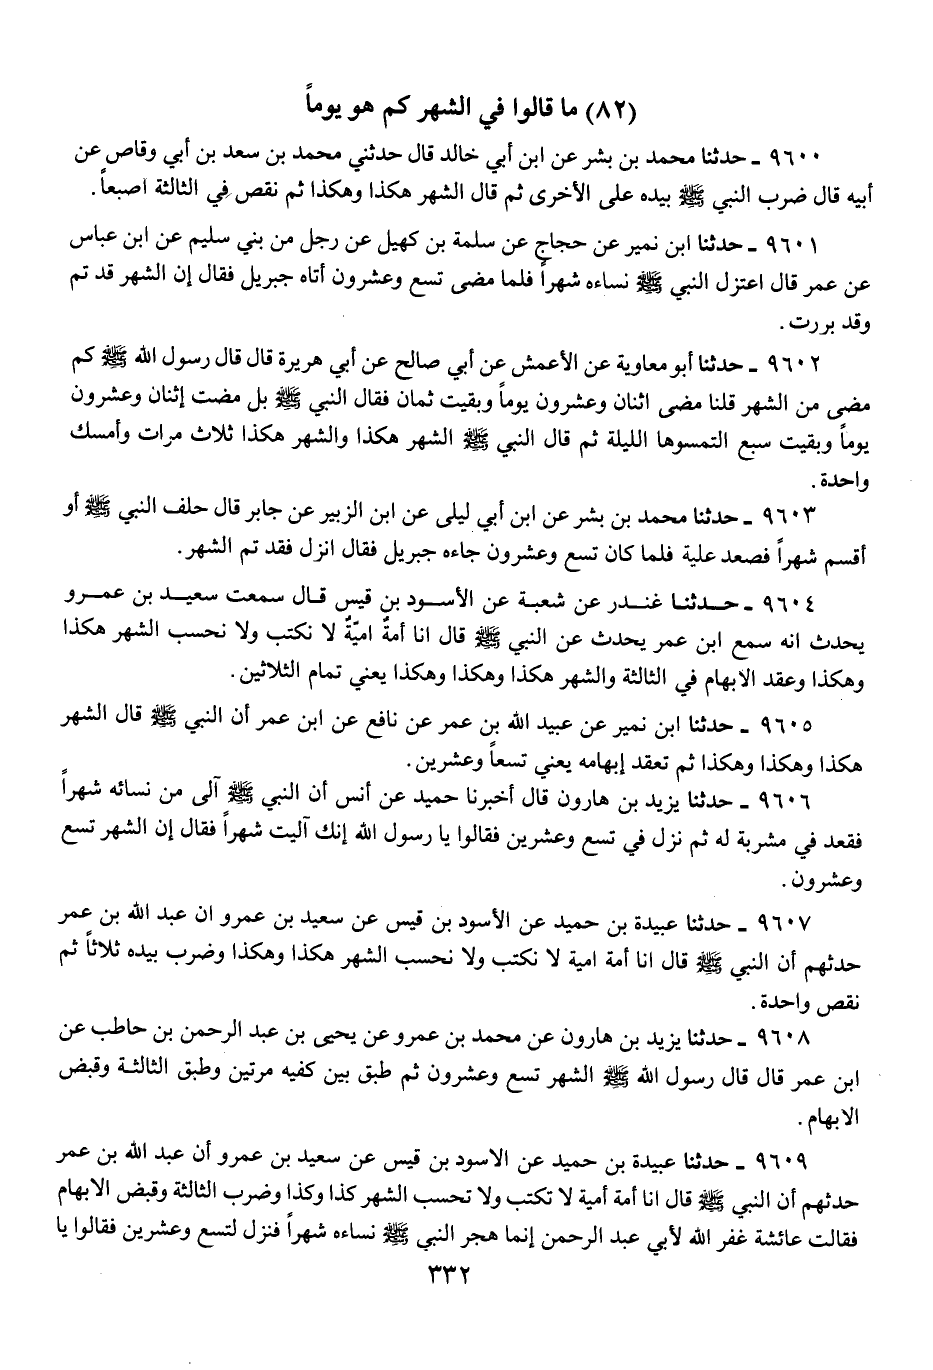 (٨٢) ما قالوا في الشهر كم هو يوماً
٩٦٠٠ ـ حدثنا محمد بن بشر عن ابن أبي خالد قال حدثني محمد بن سعد بن أبي وقاص عن
أبيه قال ضرب النبي ﷺ بيده على الأخرى ثم قال الشهر هكذا وهكذا ثم نقص في الثالثة اصبعاً.
٩٦٠١ ـ حدثنا ابن نمير عن حجاج عن سلمة بن كهيل عن رجل من بني سليم عن ابن عباس
عن عمر قال اعتزل النبي ﷺ نساءه شهراً فلما مضى تسع وعشرون أتاه جبريل فقال إن الشهر قد تم
وقد بررت.
٩٦٠٢ ـ حدثنا أبو معاوية عن الأعمش عن أبي صالح عن أبي هريرة قال قال رسول الله ﷺ كم
مضى من الشهر قلنا مضى اثنان وعشرون يوماً وبقيت ثمان فقال النبي ﷺ بل مضت إثنان وعشرون
يوماً وبقيت سبع التمسوها الليلة ثم قال النبي ﷺ الشهر هكذا والشهر هكذا ثلاث مرات وأمسك
واحدة.
٩٦٠٣ ـ حدثنا محمد بن بشر عن ابن أبي ليلى عن ابن الزبير عن جابر قال حلف النبي ﷺ أو
أقسم شهراً فصعد علية فلما كان تسع وعشرون جاءه جبريل فقال انزل فقد تم الشهر.
٩٦٠٤ ـ حدثنا غندر عن شعبة عن الأسود بن قيس قال سمعت سعيد بن عمرو
يحدث انه سمع ابن عمر يحدث عن النبي ﷺ قال انا أمةٌ اميّةٌ لا نكتب ولا نحسب الشهر هكذا
وهكذا وعقد الابهام في الثالثة والشهر هكذا وهكذا وهكذا يعني تمام الثلاثين.
٩٦٠٥ ـ حدثنا ابن نمير عن عبيد الله بن عمر عن نافع عن ابن عمر أن النبي ﷺ قال الشهر
هكذا وهكذا وهكذا ثم تعقد إبهامه يعني تسعاً وعشرين.
٩٦٠٦ ـ حدثنا يزيد بن هارون قال أخبرنا حميد عن أنس أن النبي ﷺ آلى من نسائه شهراً
فقعد في مشربة له ثم نزل في تسع وعشرين فقالوا يا رسول الله إنك آليت شهراً فقال إن الشهر تسع
وعشرون.
٩٦٠٧ ـ حدثنا عبيدة بن حميد عن الأسود بن قيس عن سعيد بن عمرو ان عبد الله بن عمر
حدثهم أن النبي ﷺ قال انا أمة امية لا نكتب ولا نحسب الشهر هكذا وهكذا وضرب بيده ثلاثاً ثم
نقص واحدة.
٩٦٠٨ ـ حدثنا يزيد بن هارون عن محمد بن عمرو عن يحيى بن عبد الرحمن بن حاطب عن
ابن عمر قال قال رسول الله ﷺ الشهر تسع وعشرون ثم طبق بين كفيه مرتين وطبق الثالثة وقبض
الابهام.
٩٦٠٩ ـ حدثنا عبيدة بن حميد عن الاسود بن قيس عن سعيد بن عمرو أن عبد الله بن عمر
حدثهم أن النبي ﷺ قال انا أمة أمية لا تكتب ولا تحسب الشهر كذا وكذا وضرب الثالثة وقبض الابهام
فقالت عائشة غفر الله لأبي عبد الرحمن إنما هجر النبي ﷺ نساءه شهراً فنزل لتسع وعشرين فقالوا يا
٣٣٢